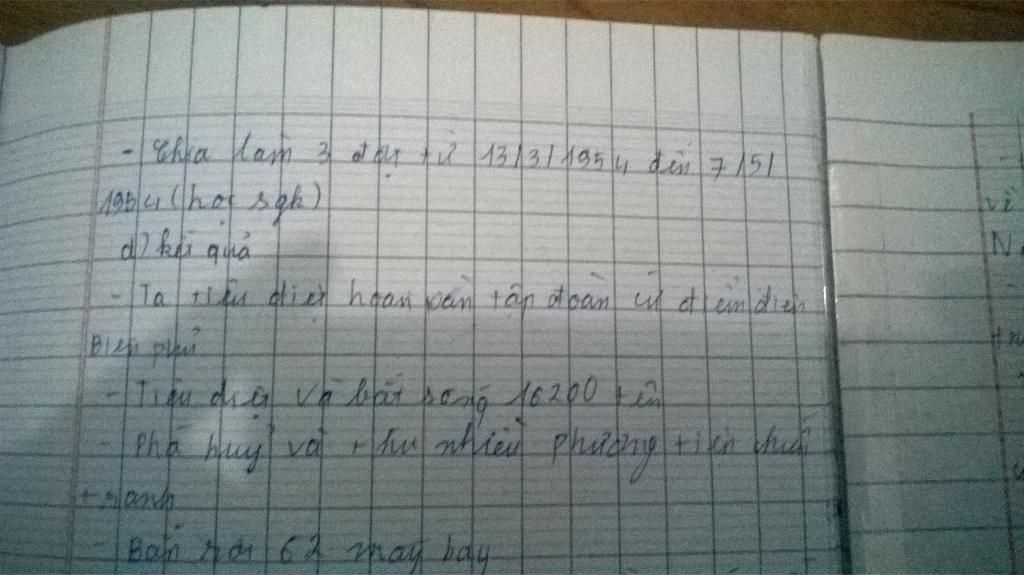 - Chia làm 3 đợt từ 13/3/1954 đến 7/5/
1954 (học sgk)
d) kết quả
- Ta tiêu diệt hoàn toàn tập đoàn cứ điểm điện
Biên phủ
- Tiêu diệt và bắt sống 16200 tên
- Phá huỷ và thu nhiều phương tiện chiến
tranh
- Bắn rơi 62 máy bay
về
N